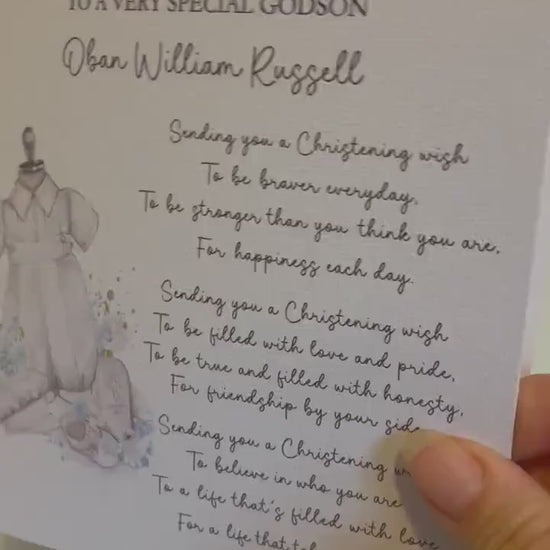 TO A VERY SPECIAL GODSON
Oban William Russell
Sending you a Christening wish
To be braver everyday,
To be stronger than you think you are,
For happiness each day.
Sending you a Christening wish
To be filled with love and pride,
To be true and filled with honesty,
For friendship by your side
Sending you a Christening
To believe in who you are
To a life that's filled with love
For a life that